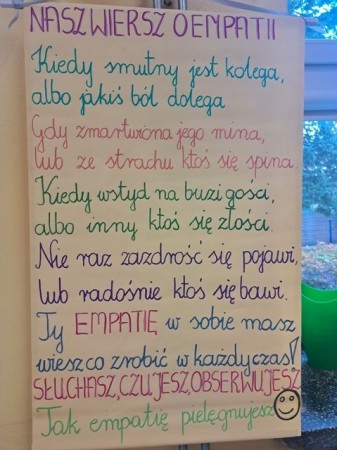 NASZ WIERSZ O EMPATII
Kiedy smutny jest kolega,
albo jakiś ból dolega.
Gdy zmartwiona jego mina,
lub ze strachu ktoś się spina.
Kiedy wstyd na buzi gości,
albo inny ktoś się złości.
Nie raz zazdrość się pojawi,
lub radośnie ktoś się bawi.
Ty EMPATIĘ w sobie masz
wiesz co zrobić w każdy czas!
SŁUCHASZ, CZUJESZ, OBSERWUJESZ
Tak empatię pielęgnujesz